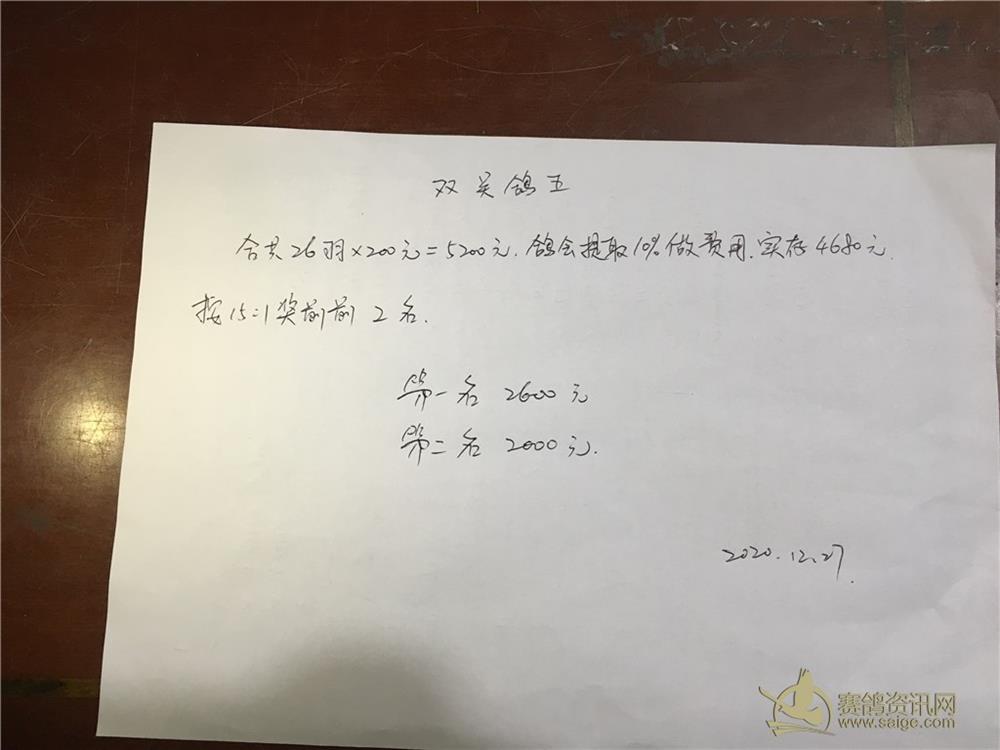 双关鸽王
合共26羽×200元=5200元.鸽会提取10%做费用.实存4680元.
按15:1奖前前2名.
第一名 2600元
第二名 2000元.
2020.12.27.
赛鸽资讯网
www.saige.com